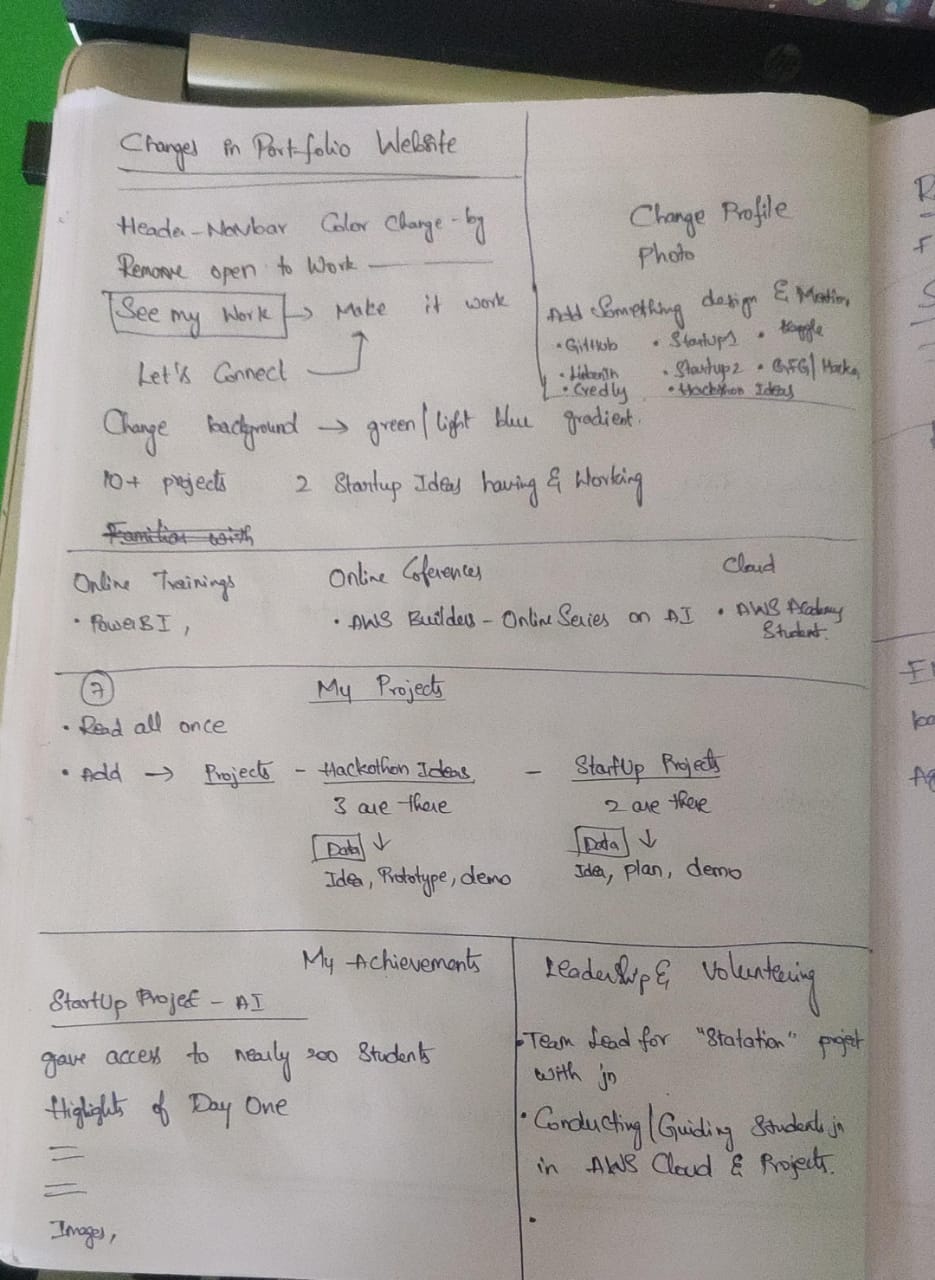 Changes in Portfolio Website
Header - Navbar Color Change - by
Remove open to Work
See my Work → Make it work
Let's Connect
Change Profile
Photo
Add Something design &
• GitHub • Startups1 • kaggle
• LinkenIn • Startup2 • GFG/
• Credly • Hackathon Ideas
Change background → green/light blue gradient.
10+ projects 2 Startup Ideas having & Working
Familiar with
Online Trainings
• PowerBI,
Online Coferences
• AWS Builders - Online Series on AI
Cloud
• AWS Academy
Student.
7 My Projects
• Read all once
• Add → Projects - Hackothon Ideas - StartUp Projects
3 are there 2 are there
Data ↓ Data ↓
Idea, Prototype, demo Idea, plan, demo
My Achievements
StartUp Projec - AI
gave access to nearly 200 Students
Highlights of Day One
Images,
Leadership & Volunteering
• Team Lead for "Statation" project
with jn
• Conducting/Guiding Students jn
in AWS Cloud & Projects.